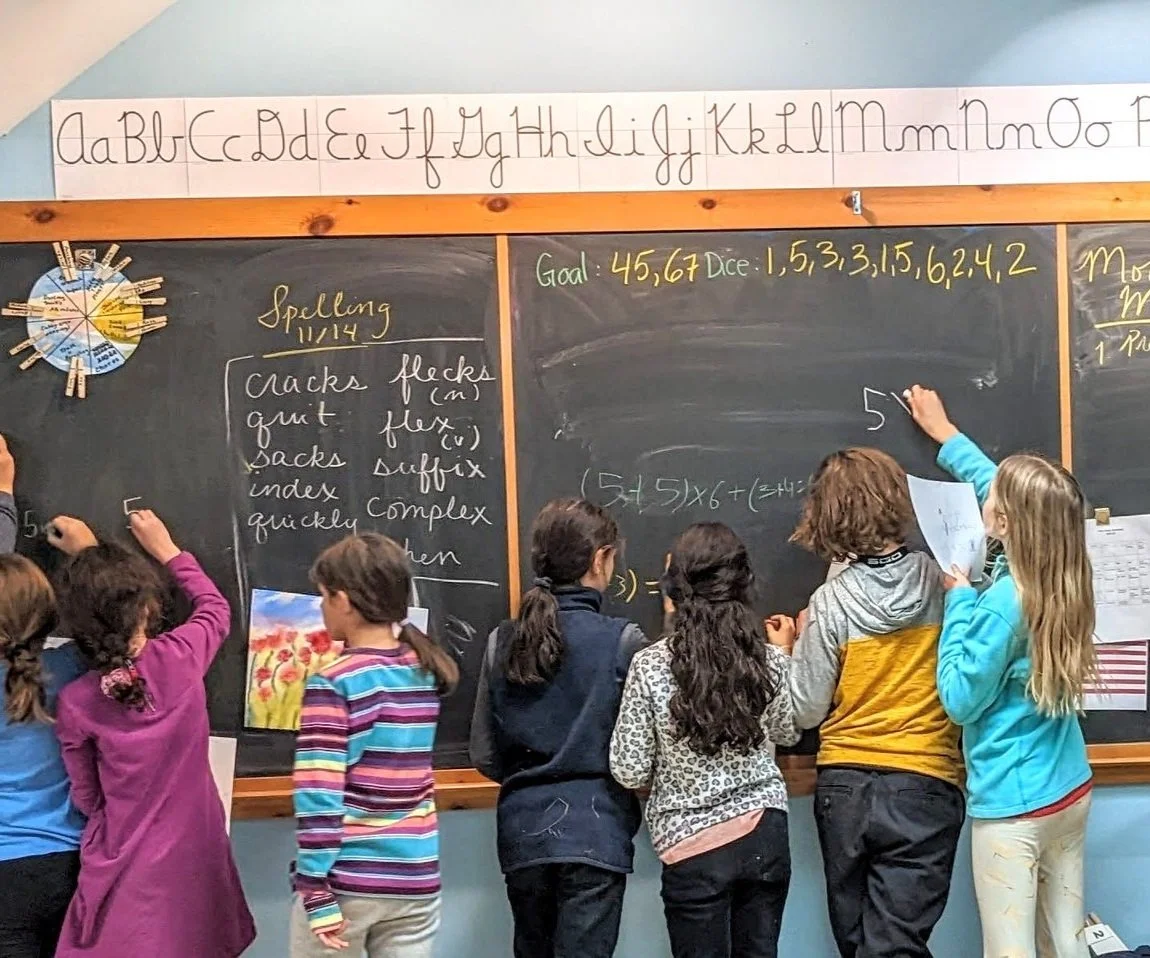 Aa Bb Cc Dd Ee Ff Gg Hh Ii Jj Kk Ll Mm Nn Oo P
Spelling
11/14
cracks flecks
(n)
quit flex
(v)
sacks suffix
index complex
quickly
hen
Goal: 45,67 Dice: 1,5,3,3,1,5,6,2,4,2
5
(5+5)x6+(3+4=
3) =
5
5
Mo
M
1 Pr
2